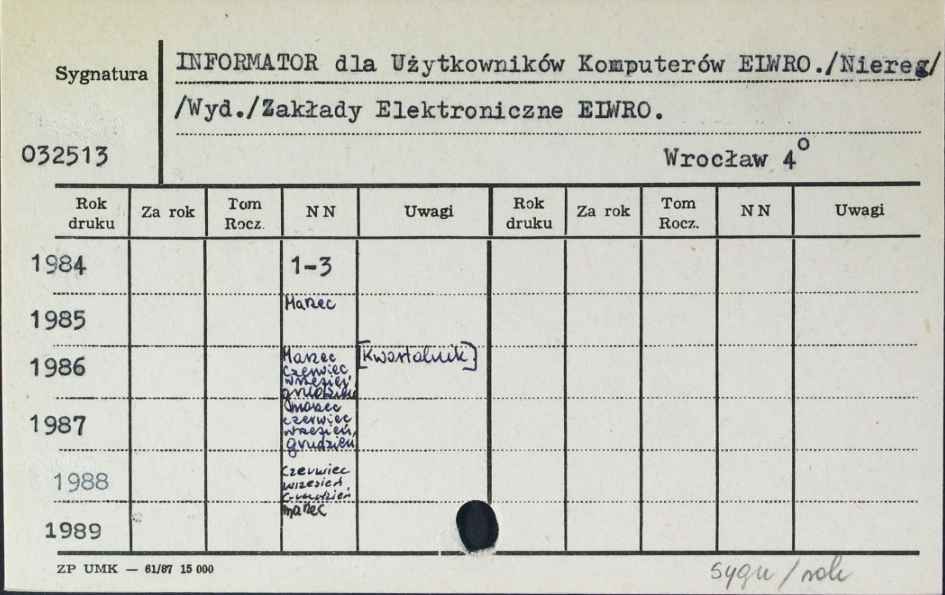 Sygnatura
INFORMATOR dla Użytkowników Komputerów ELWRO./Niereg/
/Wyd./Zakłady Elektroniczne ELWRO.
032513
Wrocław 4°
Rok druku Za rok Tom Rocz. NN Uwagi Rok druku Za rok Tom Rocz. NN Uwagi
1984 1-3
1985 Marzec
1986 Marzec [Kwartalnik]
czerwiec
wrzesień
grudzień
1987 marzec
czerwiec
wrzesień,
grudzień
1988 czerwiec
wrzesień
grudzień
1989 marzec
ZP UMK — 61/87 15 000
sygn/rok